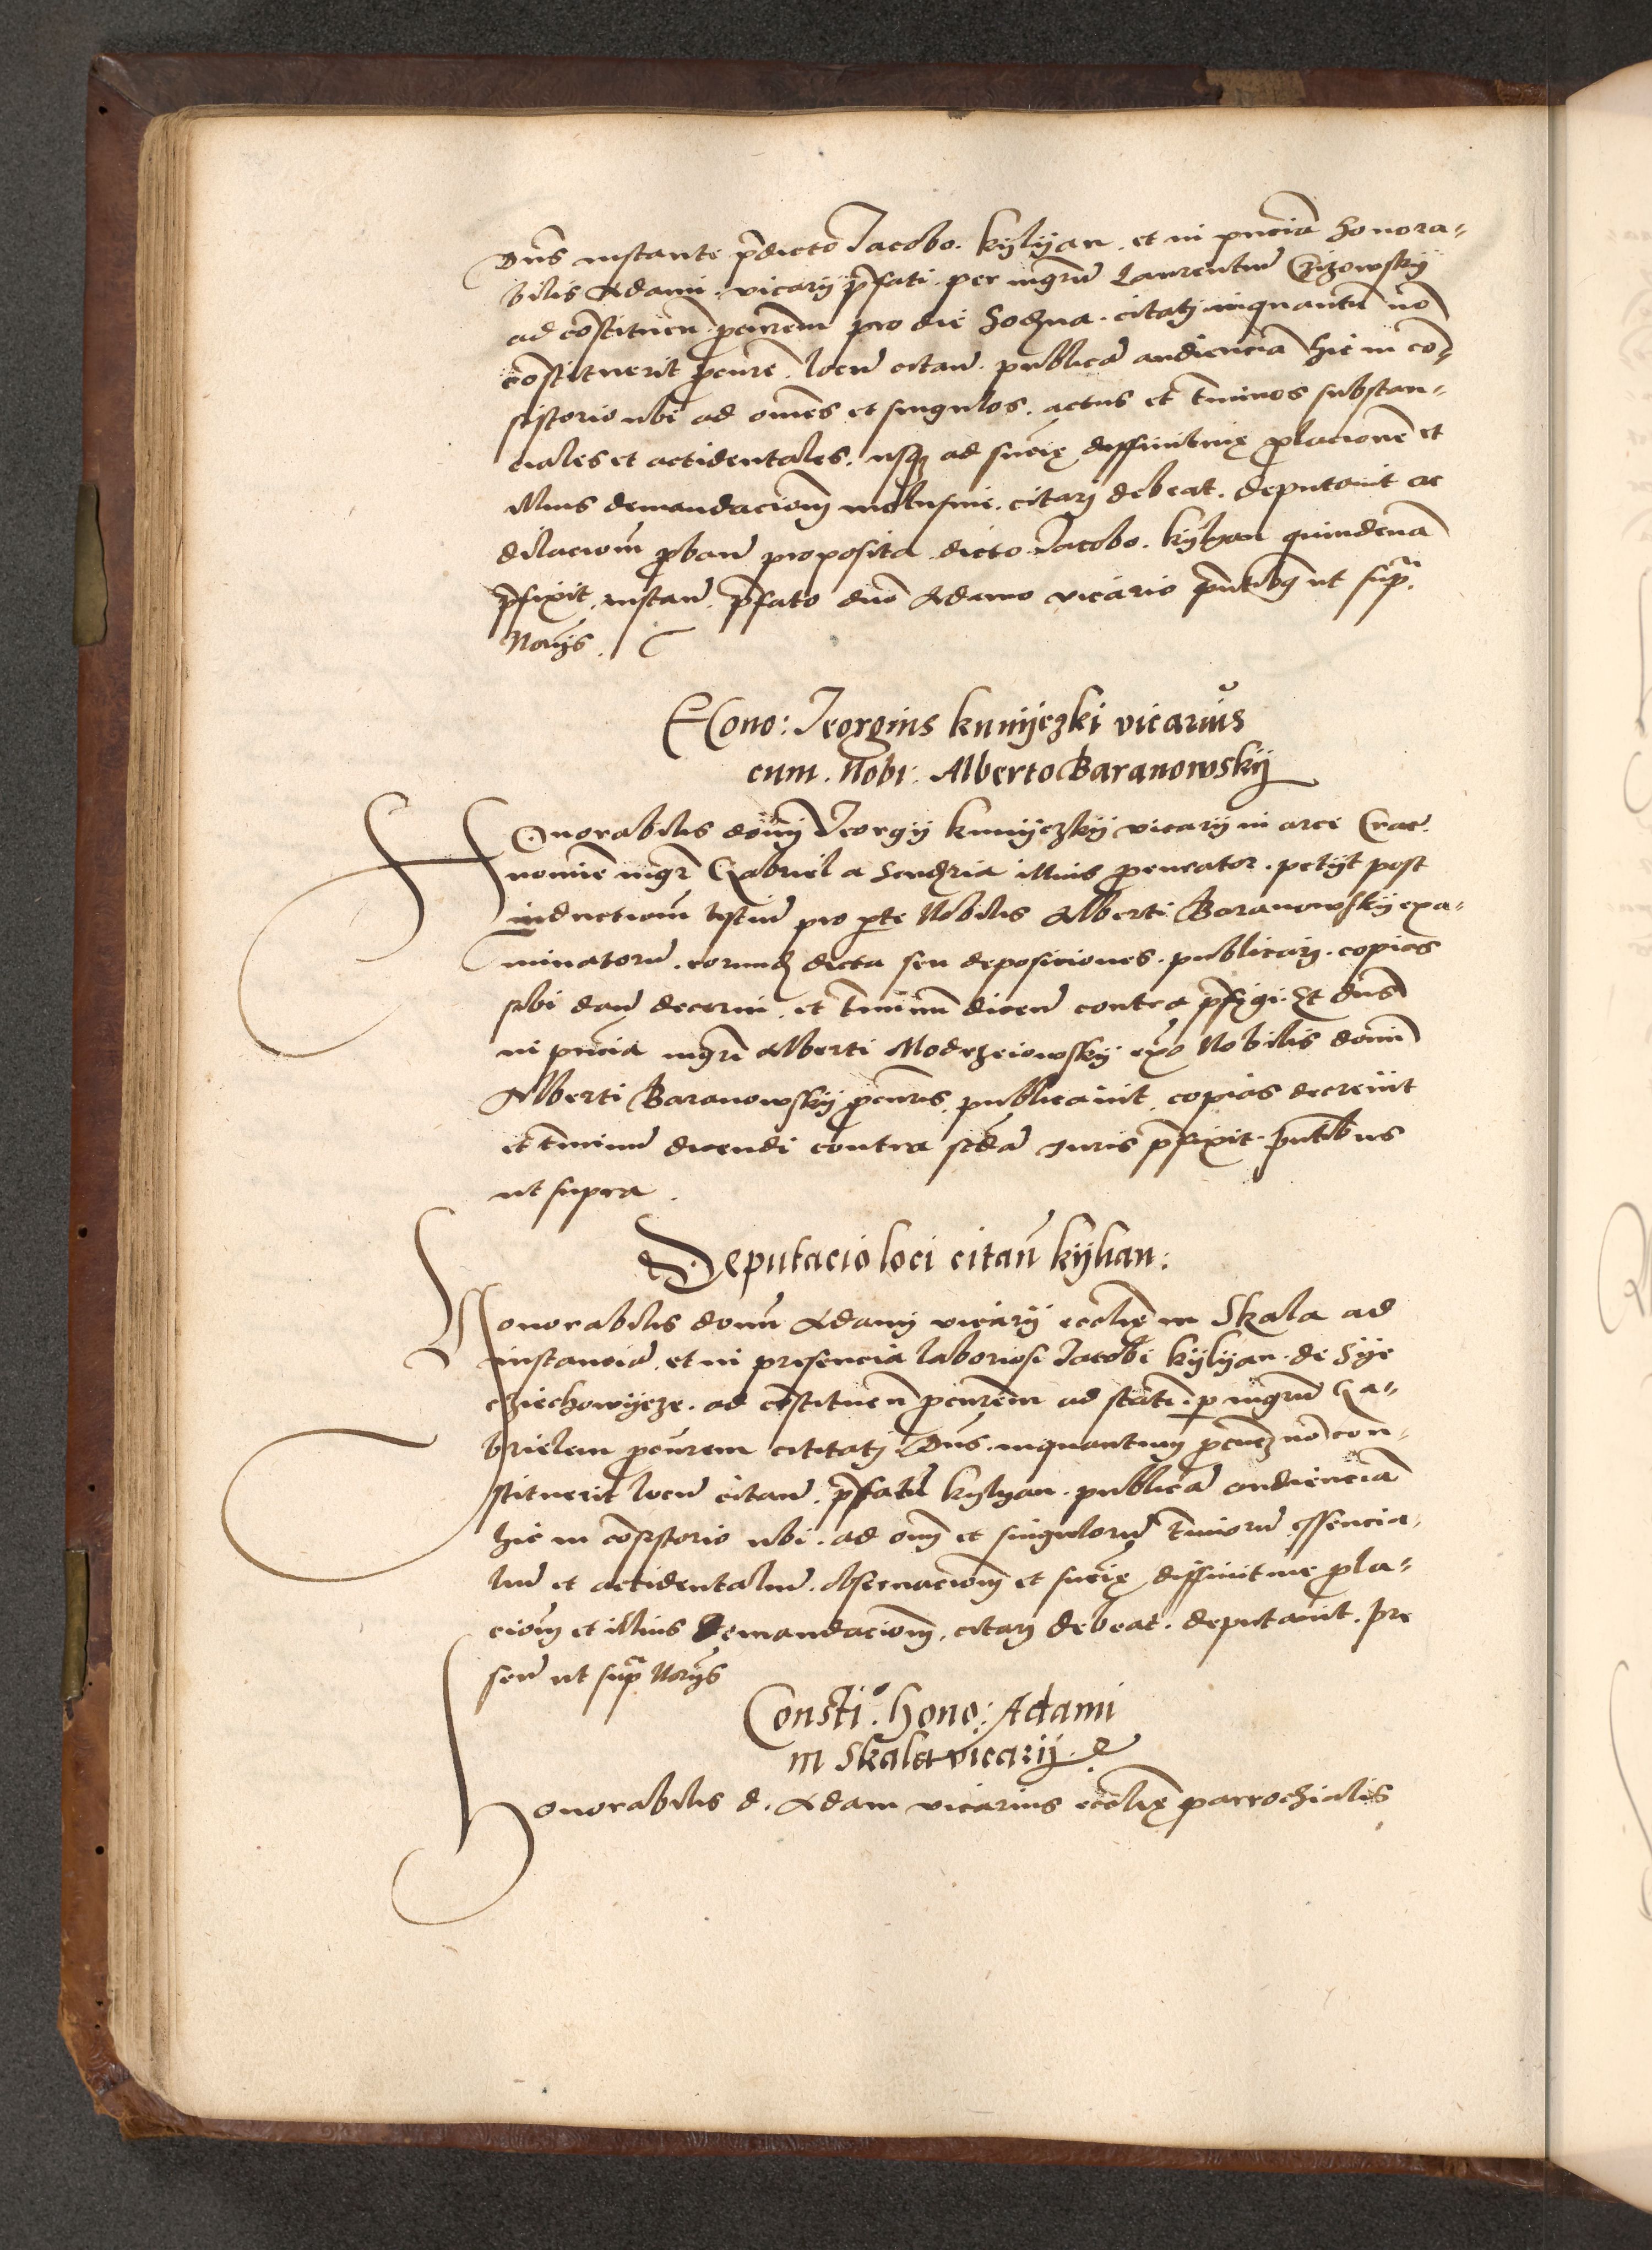 Dns instante pdicto Jacobo. kylyan. et in pncia honora⸗
bilis Adami. vicarij pfati per mgrm Laurentiu Czizowskij
ad costituen. pcurem pro die hodrna. citatj inquantu no
costituerit pcure. locu citan. publica audiencia hic in co⸗
sistorio ubi ad omes et singulos. actus et tminos substan⸗
ciales et accidentales. usq ad snie diffinitiue plationē et
illius demandacionem inclusiue. citarj debeat. deputauit ac
dilacionem proban proposita dicto Jacobo. kylyan quindena
pfixit. instan. pfato dno Adamo vicario pntibq ut supra.
Norijs.
Hono: Georgius knuijczki vicarius
cum. Nobi: Alberto Baranowskij
HOnorabilis domj Georgij knuijczkij vicarij in arce Crac.
nomine mgr Gabriel a illius procurator. petijt post
inductionem testiu pro pte Nobilis Alberti Baranowskij exa⸗
minatoru. eorund dicta seu deposiciones. publicarj. copias
sibi dan decerni. et tminum dicen contra pfigi. Et dns
in pncia mgri Alberti Modrzeiowskij Nobilis domi
Alberti Baranowskij pcuris. publicauit. copias decreuit
et tminu dicendi contra scda iuris pfixit. pntibus
ut supra.
Deputacio loci citan kijlian:
Honorabilis domi Adamj vicarij ecclie in Skala ad
instancia. et in presencia laboriosi Jacobi kylyan. de Sye
cziechowijcze. ad costituen pcurem ad p mgrm Ga⸗
brielem pcurem cititatj. Dns. inquantum pcurem no con⸗
stituerit locu citan. pfatu kylyan. publica audiencia
hic in cosistorio ubi. ad omn et singuloru tminoru essencia⸗
liu et accidentaliu. obseruacionem et snie diffinitiue pla⸗
cionem et illius Demandacionem. citarj debeat. deputauit. pre
sen ut supra Norijs
Consti°. hono: Adami
in Skala vicarij.
Honorabilis d. Adam vicarius ecclie parrochialis